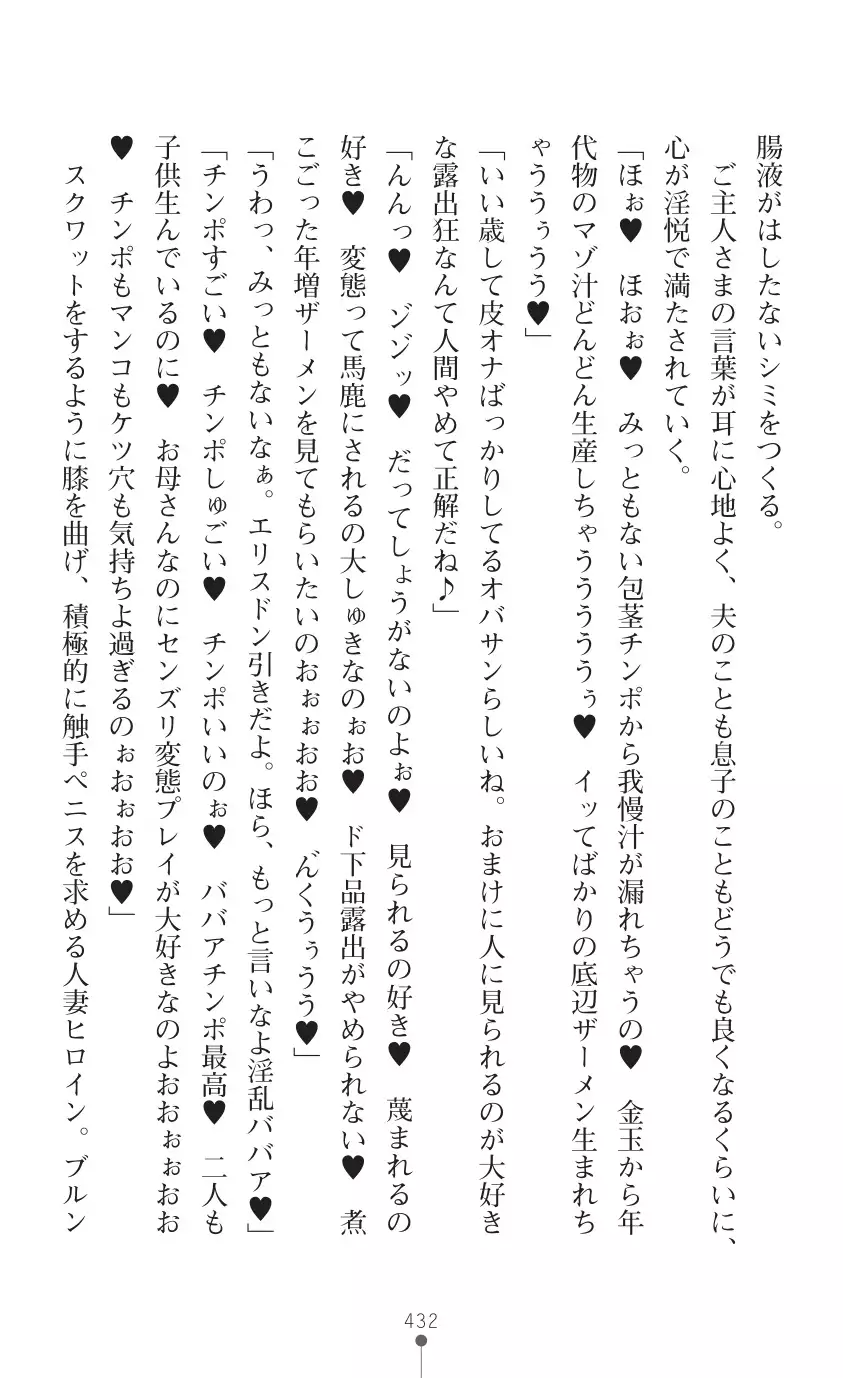 腸液がはしたないシミをつくる。
　ご主人さまの言葉が耳に心地よく、夫のことも息子のこともどうでも良くなるくらいに、
心が淫悦で満たされていく。
「ほぉ♥　ほおぉ♥　みっともない包茎チンポから我慢汁が漏れちゃうの♥　金玉から年
代物のマゾ汁どんどん生産しちゃうううううぅ♥　イッてばかりの底辺ザーメン生まれち
ゃううぅうう♥」
「いい歳して皮オナばっかりしてるオバサンらしいね。おまけに人に見られるのが大好き
な露出狂なんて人間やめて正解だね♪」
「んんっ♥　ゾゾッ♥　だってしょうがないのよぉ♥　見られるの好き♥　蔑まれるの
好き♥　変態って馬鹿にされるの大しゅきなのぉお♥　ド下品露出がやめられない♥　煮
こごった年増ザーメンを見てもらいたいのおぉぉおお♥　んくうぅうう♥」
「うわっ、みっともないなぁ。エリスドン引きだよ。ほら、もっと言いなよ淫乱ババァ♥」
「チンポすごい♥　チンポしゅごい♥　チンポいいのぉ♥　ババアチンポ最高♥　二人も
子供生んでいるのに♥　お母さんなのにセンズリ変態プレイが大好きなのよおおぉぉおお
♥　チンポもマンコもケツ穴も気持ちよ過ぎるのぉおぉおお♥」
　スクワットをするように膝を曲げ、積極的に触手ペニスを求める人妻ヒロイン。ブルン
432